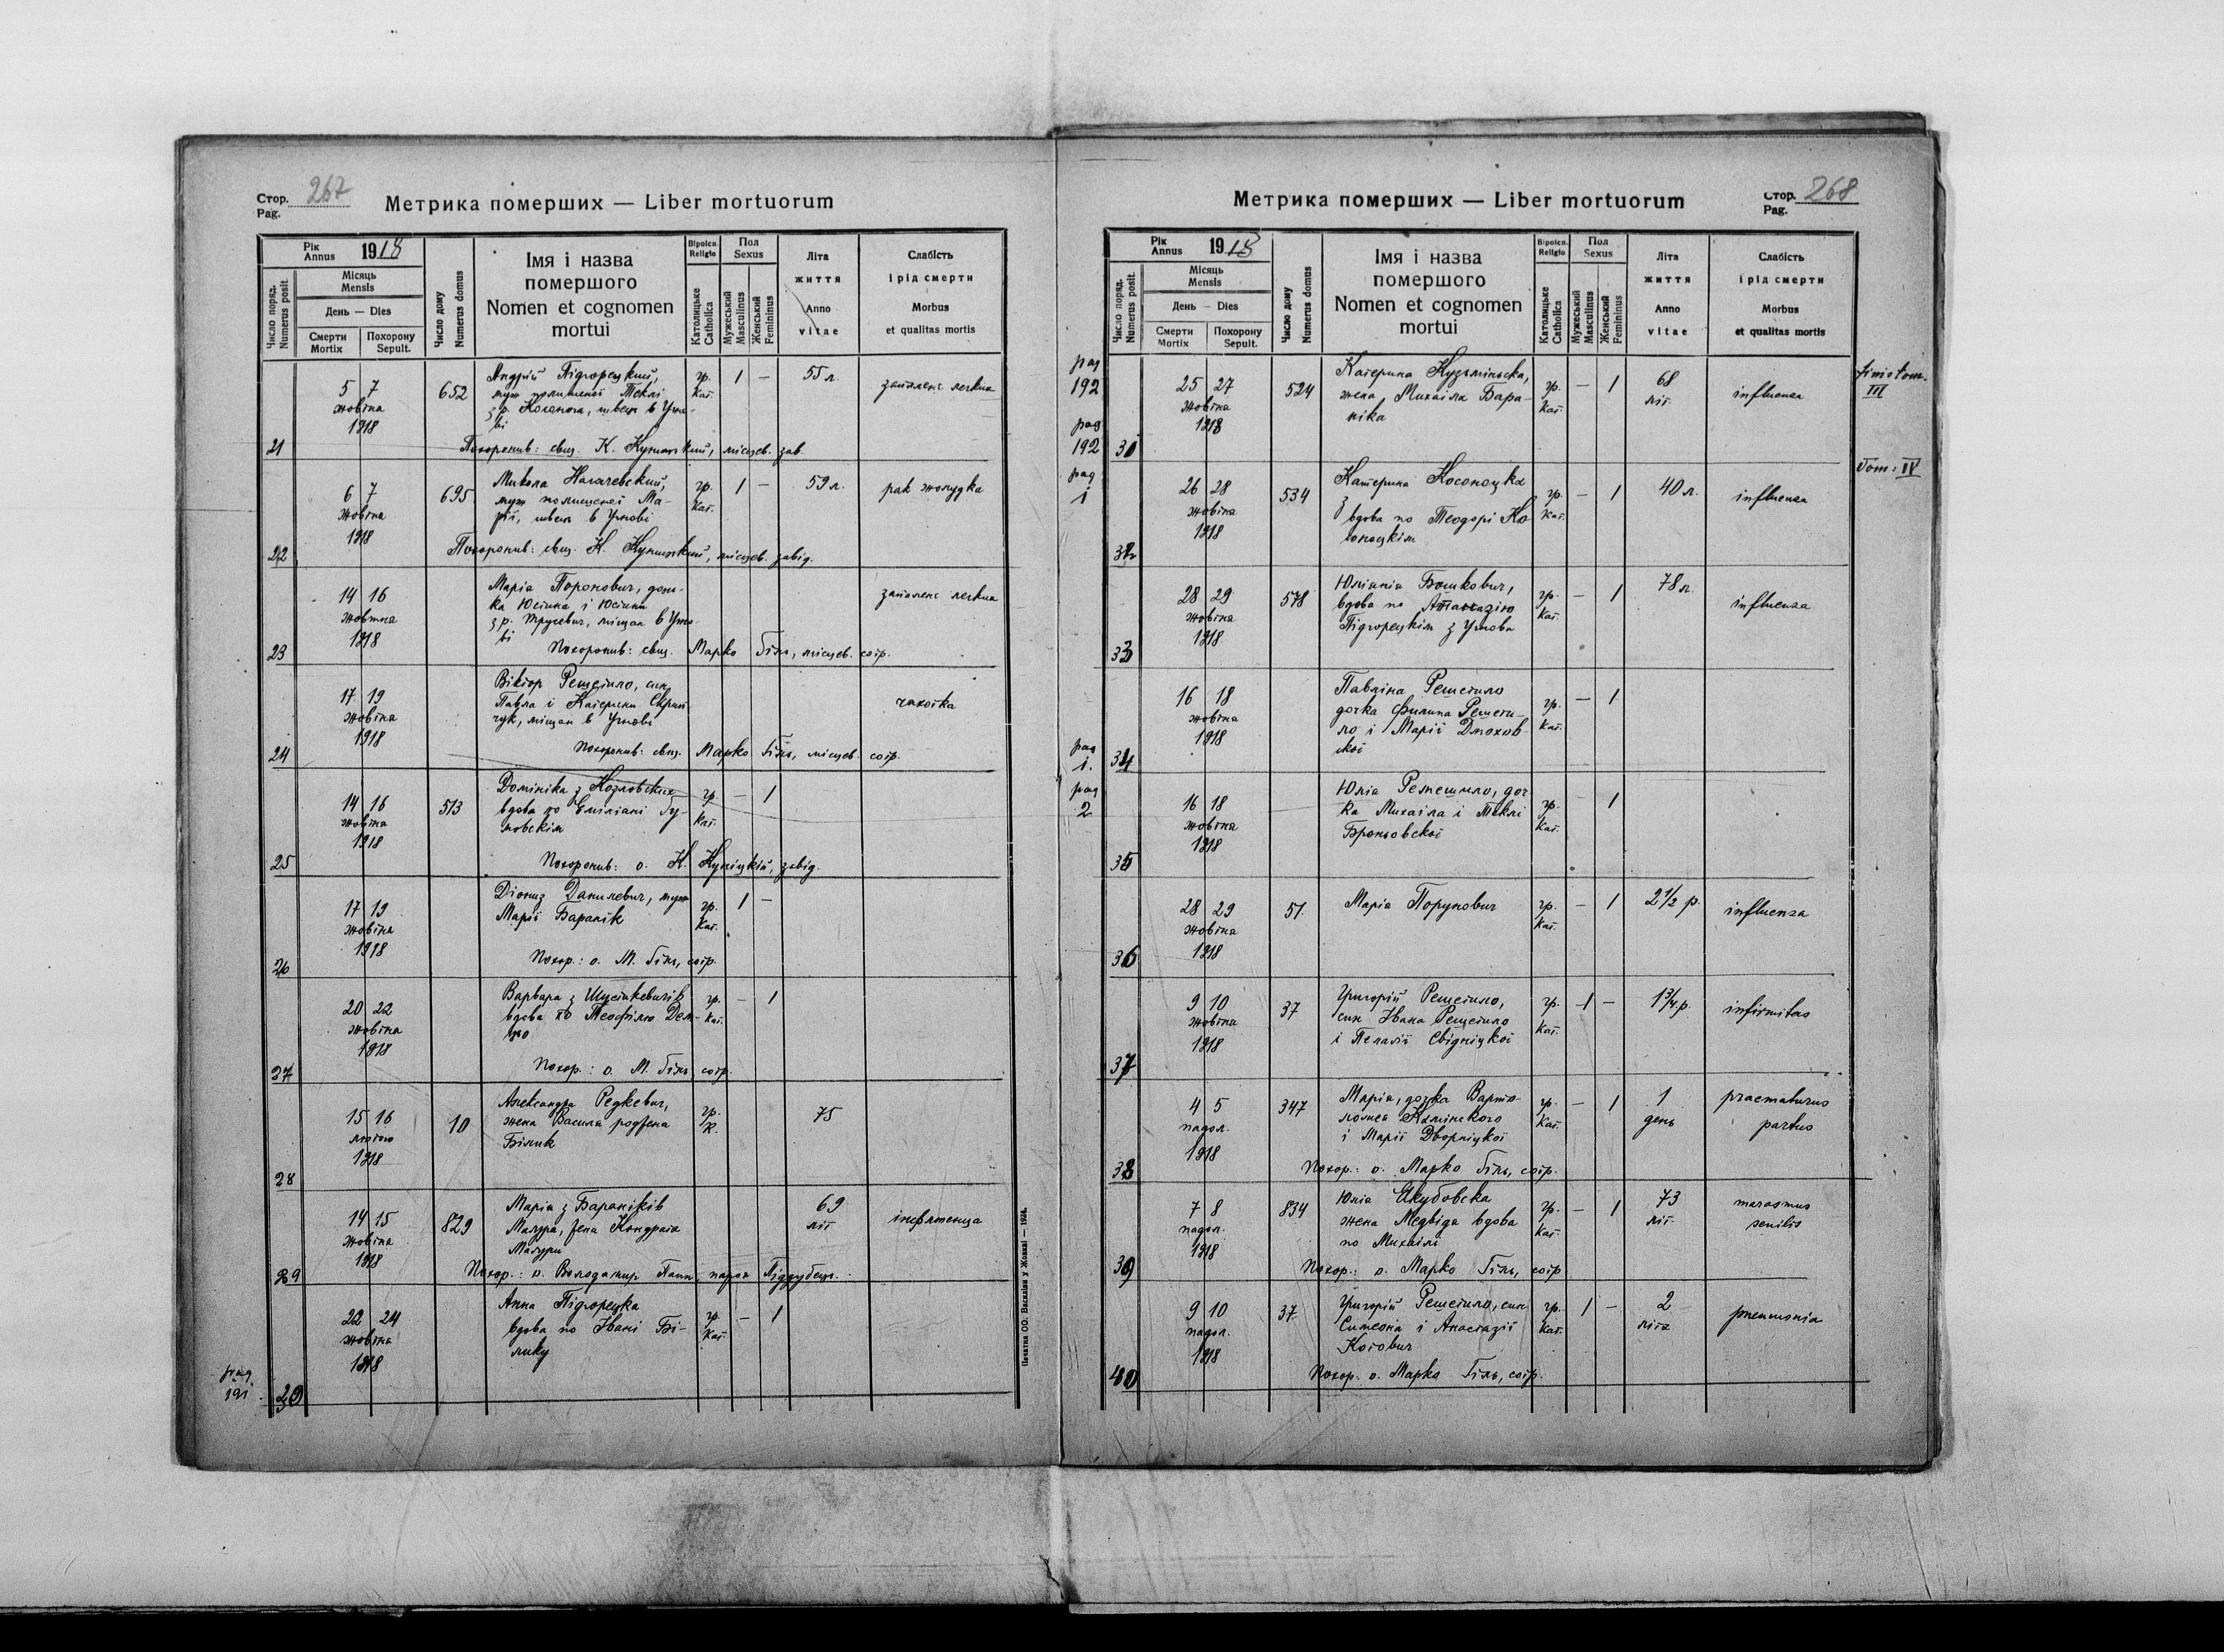 Стор. 267
Pag.
Метрика померших — Liber mortuorum
Рік
Annus
1918
Місяць
Mensis
День — Dies
Число поряд.
Numerus posit.
Смерти
Mortix
Похорону
Sepult.
Число дому
Numerus domus
Імя і назва
помершого
Nomen et cognomen
mortui
Віроісп.
Religio
Католицьке
Catholica
Пол
Sexus
Мужеський
Masculinus
Женський
Femininus
Літа
життя
Anno
vitae
Слабість
і рід смерти
Morbus
et qualitas mortis
21
5 7
жовтня
1918
652
Андрій Підгорецкий,
муж полишеної Теклі
з р. , швець в Угно-
ві
гр.
кат.
1 —
55 л.
запаленє легких
Похоронив: свщ. К. , місцев. зав.
22
6 7
жовтня
1918
695
Микола Нагачевский,
муж полишеної Ма-
рії, швець в Угнові
гр.
кат.
1 —
59 л.
рак жолудка
Похоронив: свщ. К. , місцев. завід.
23
14 16
жовтня
1918
Марія Поронович, донь-
ка Юстина і Юстини
з р. , міщан в Угно-
ві
запаленє легких
Похоронив: свщ. Марко Гіль, місцев. сотр.
24
17 19
жовтня
1918
Віктор Решетило, син
Павла і Катерини Скрип
чук, міщан в Угнові
чахотка
Похоронив: свщ. Марко Гіль, місцев. сотр.
25
14 16
жовтня
1918
513
Домініка з Козловских
вдова по Еміліані Гу-
мовскім
гр.
кат.
— 1
Похоронив: о. К. Куніцкий, завід.
26
17 19
жовтня
1918
Діониз Данилевич, муж
Марії Баранік
гр.
кат.
1 —
Похор.: о. М. Гіль, сотр.
27
20 22
жовтня
1918
Варвара з Шустакевичів
вдова по Теофілю Дем-
ко
гр.
кат.
— 1
Похор.: о. М. Гіль сотр.
28
15 16
лютого
1918
10
Александра Редкевич,
жена Василя роджена
Білик
гр.
к.
75
29
14 15
жовтня
1918
829
Марія з Бараніків
Мазура, жена Кондрата
Мазури
69
літ
інфлюенца
Похор.: о. Володимир , парох Піддубець.
30
22 24
жовтня
1918
Анна Підгорецка
вдова по Івані Бі-
лику
гр.
кат.
— 1
pag.
191
Печатня ОО. Василіян у Жовкві — 1924.
Стор. 268
Pag.
Метрика померших — Liber mortuorum
Рік
Annus
1918
Місяць
Mensis
День — Dies
Число поряд.
Numerus posit.
Смерти
Mortix
Похорону
Sepult.
Число дому
Numerus domus
Імя і назва
помершого
Nomen et cognomen
mortui
Віроісп.
Religio
Католицьке
Catholica
Пол
Sexus
Мужеський
Masculinus
Женський
Femininus
Літа
життя
Anno
vitae
Слабість
і рід смерти
Morbus
et qualitas mortis
pag
192
pag
192
31
25 27
жовтня
1918
524
Катерина Кузьміньска,
жена Михаіла Бара-
ніка
гр.
кат.
— 1
68
літ.
influenza
finis tom.
III
Tom: IV
pag
1
32
26 28
жовтня
1918
534
Катерина Косоноцка
вдова по Теодорі Ко
соноцкім
гр.
кат.
— 1
40 л.
influenza
33
28 29
жовтня
1918
578
Юліанія Бошкович,
вдова по Атаназію
Підгорецкім з Угнова
гр.
кат.
— 1
78 л.
influenza
34
16 18
жовтня
1918
Павліна Решетило
дочка Филипа Решети-
ло і Марії Дмохов-
скої
гр.
кат.
— 1
pag
1.
pag
2
35
16 18
жовтня
1918
Юлія Решетило, доч
ка Михаіла і Теклі
Броньовскої
гр.
кат.
— 1
36
28 29
жовтня
1918
51.
Марія Порунович
гр.
кат.
— 1
2 1/2 р.
influenza
37
9 10
жовтня
1918
37
Григорій Решетило,
син Івана Решетило
і Пелагії Свідніцкої
гр.
кат.
1 —
1 3/4 р.
infirmitas
38
4 5
падол.
1918
347
Марія, дочка Варто-
ломея Камінского
і Марії Дворніцкої
гр.
кат.
— 1
1
день
praematurus
partus
Похор.: о. Марко Гіль, сотр.
39
7 8
падол.
1918
834
Юлія Якубовска
жена Медвіда вдова
по Михаілі
гр.
кат.
— 1
73
літ.
marasmus
senilis
Похор.: о. Марко Гіль, сотр
40
9 10
падол.
1918
37
Григорій Решетило, син
Симеона і Анастазії
Котович
гр.
кат.
1 —
2
літа
pneumonia
Похор. о. Марко Гіль, сотр.